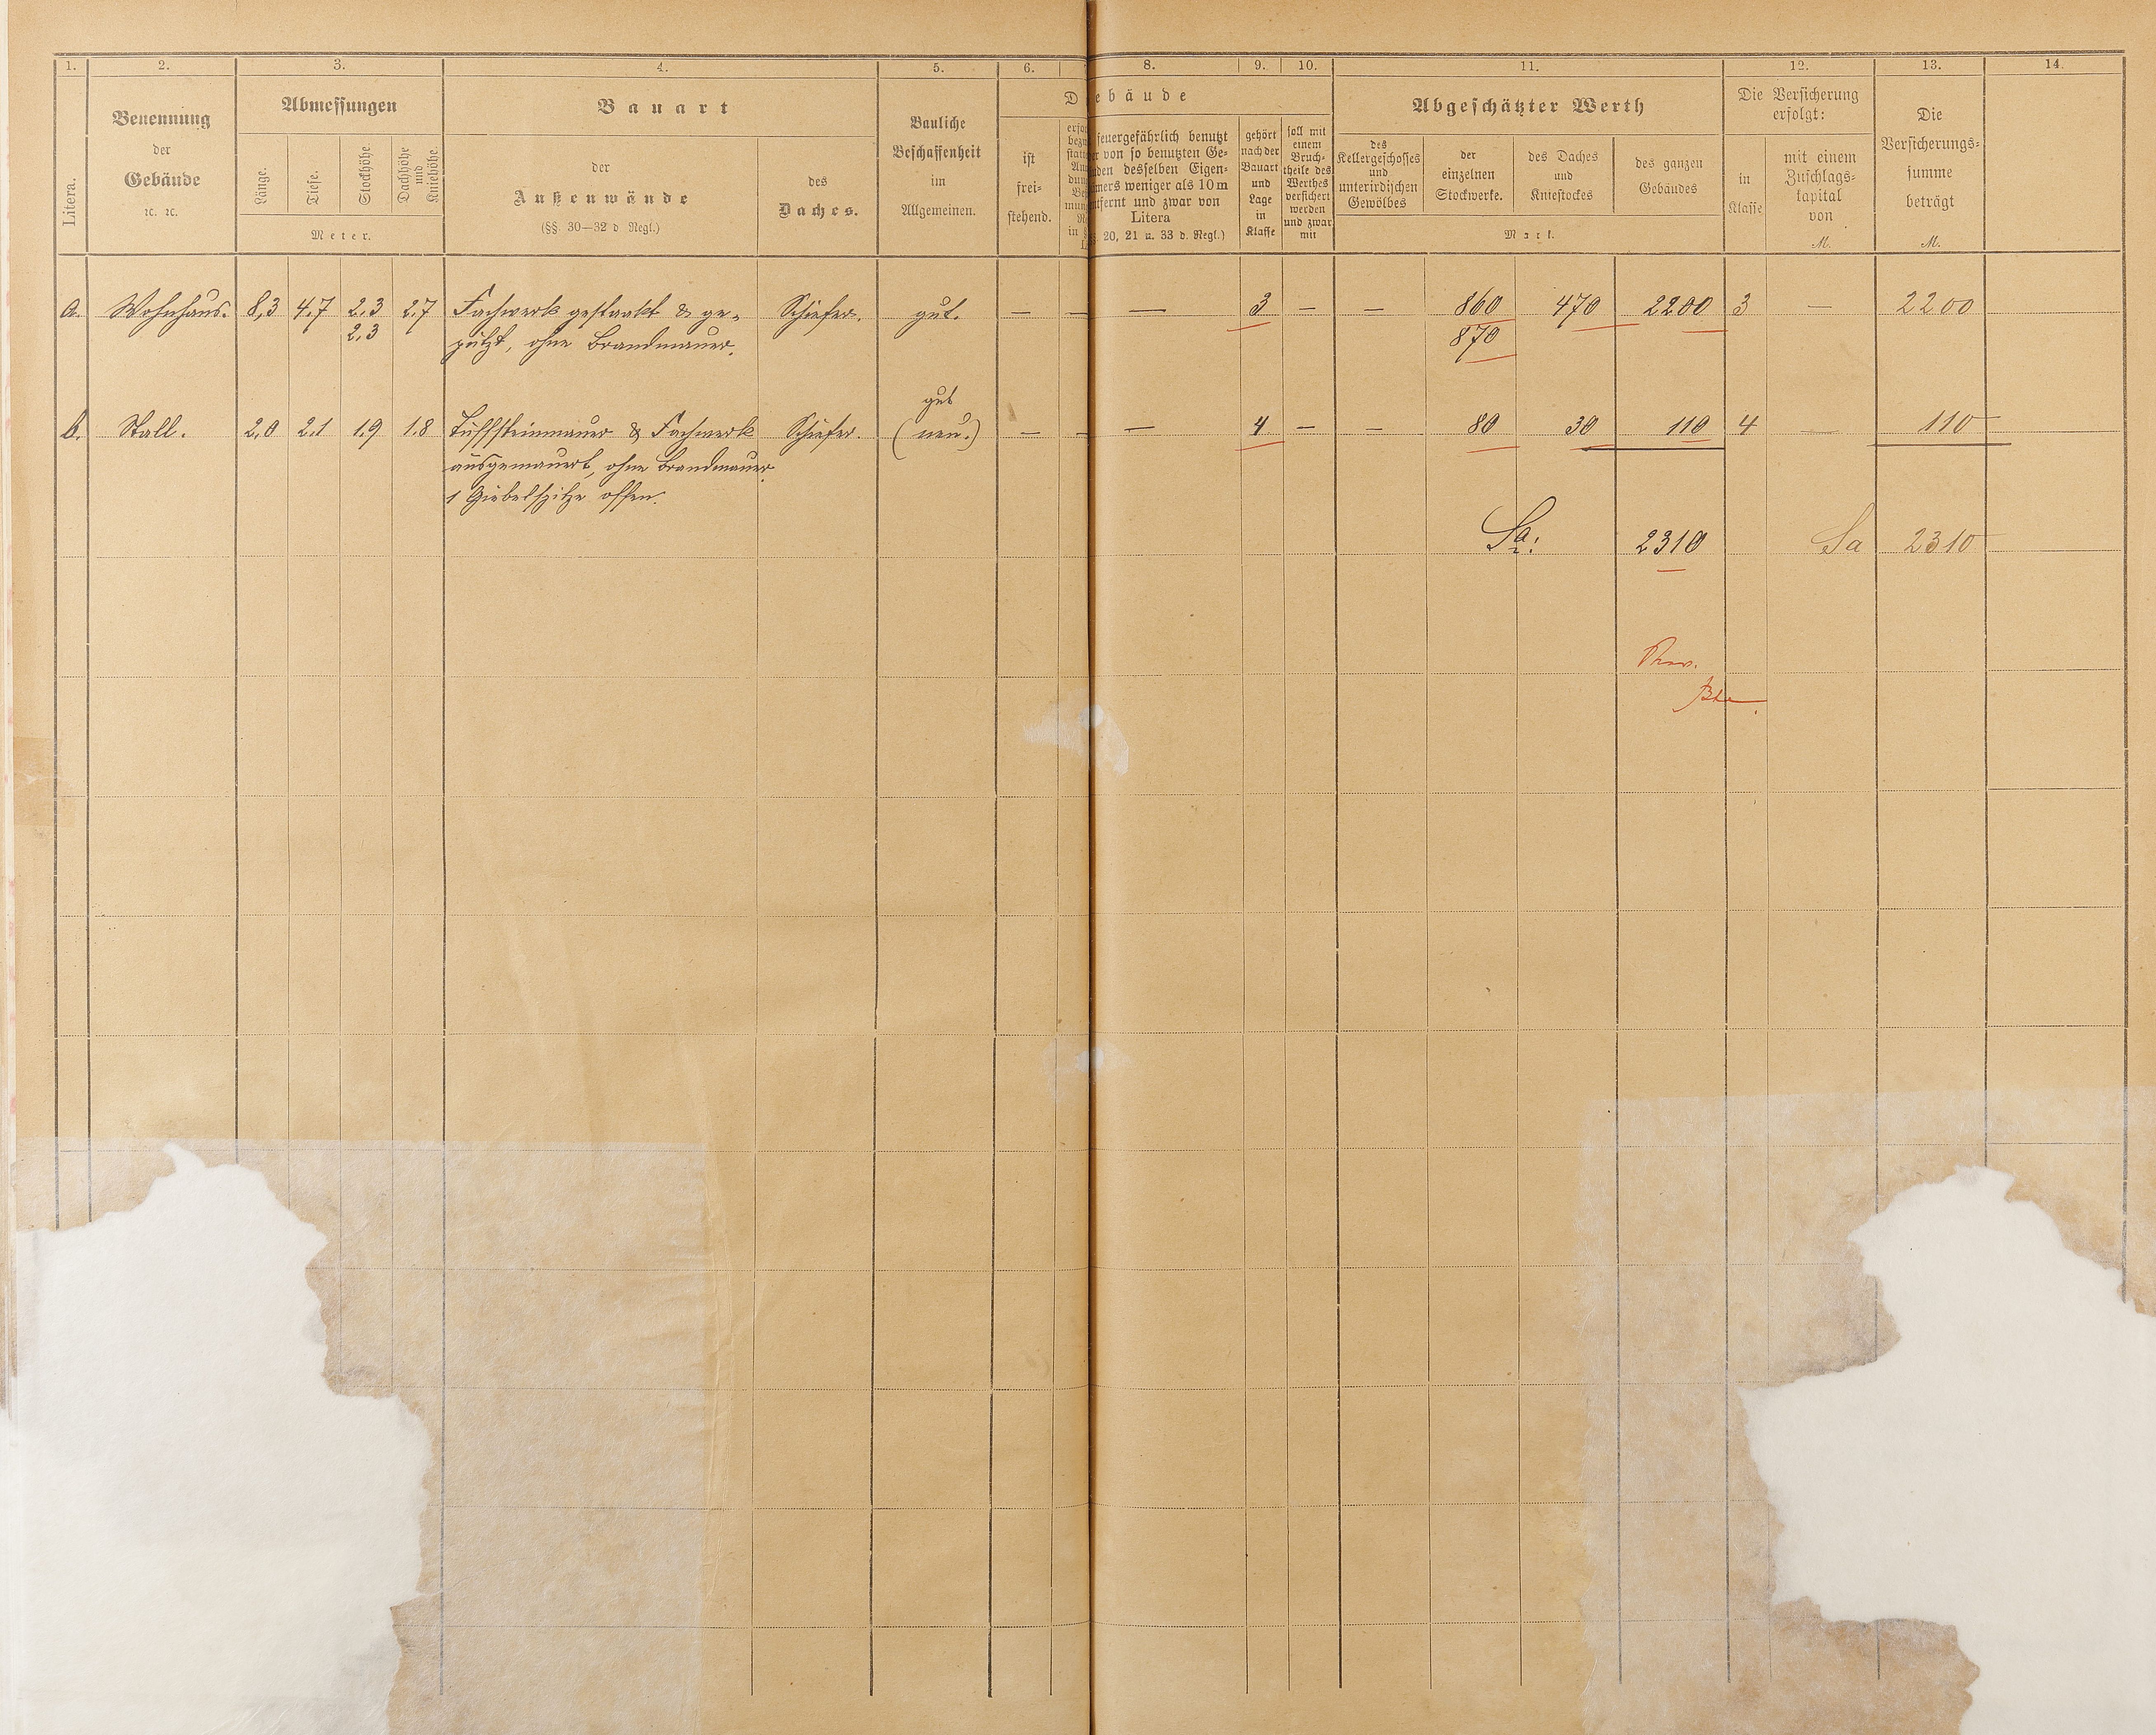 1. 2. 3. 4. 5. 6. 8. 9. 10. 11. 12. 13. 14.
Litera.
Benennung
der
Gebäude
ꝛc. ꝛc.
Abmessungen
Länge. Tiefe. Stockhöhe. Dachhöhe und Kniehöhe.
Meter.
Bauart
der
Außenwände
(§§. 30—32 d Regl.)
des
Daches.
Bauliche
Beschaffenheit
im
Allgemeinen.
D
ebäude
ist
frei-
stehend.
feuergefährlich benutzt
er von so benutzten Ge-
den desselben Eigen-
mers weniger als 10 m
ntfernt und zwar von
Litera
20, 21 u. 33 d. Regl.)
gehört
nach der
Bauart
und
Lage
in
Klasse
soll mit
einem
Bruch-
theile des
Werthes
versichert
werden
und zwar
mit
Abgeschätzter Werth
des
Kellergeschosses
und
unterirdischen
Gewölbes
der
einzelnen
Stockwerke.
des Daches
und
Kniestockes
des ganzen
Gebäudes
Mark.
Die Versicherung
erfolgt:
in
Klasse
mit einem
Zuschlags-
kapital
von
M.
Die
Versicherungs-
summe
beträgt
M.
a. Wohnhaus. 8,3 4.7 2.3 2.7 Fachwerk gestaakt & ge- Schiefer. gut. — — — 3 — — 860 470 2200 3 — 2200
2,3 putzt, ohne Brandmauer. 870
gut
b. Stall. 2,0 2.1 1.9 1.8 Tuffsteinmauer & Fachwerk Schiefer. (neu.) — — — 4 — — 80 30 110 4 — 110
ausgemauert, ohne Brandmauer
1 Giebelspitze offen.
Sa: 2310 Sa 2310